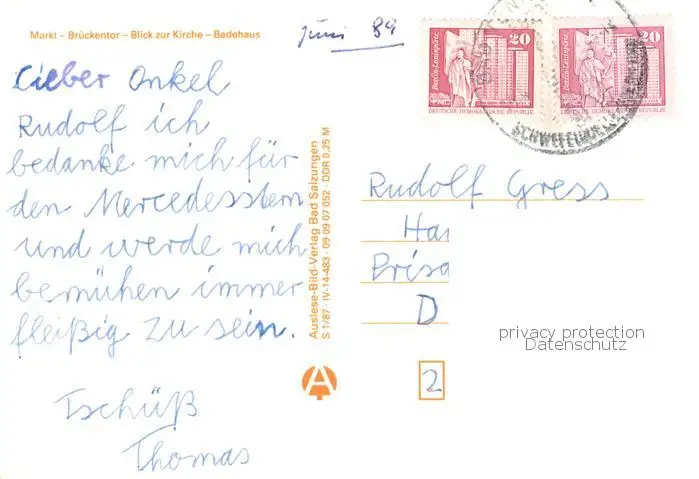 Markt – Brückentor – Blick zur Kirche – Badehaus
Juni 89
Lieber Onkel
Rudolf ich
bedanke mich für
den Mercedesstern
und werde mich
bemühen immer
fleißig zu sein.
Tschüß
Thomas
Auslese-Bild-Verlag Bad Salzungen
S 1/87 · IV-14-483 · 09 09 07 052 · DDR 0,25 M
A
20
Berlin-Leninplatz
DEUTSCHE DEMOKRATISCHE REPUBLIK
20
Berlin-Leninplatz
DEUTSCHE DEMOKRATISCHE REPUBLIK
Rudolf Gress
Ha
Prisa
D
2
privacy protection
Datenschutz